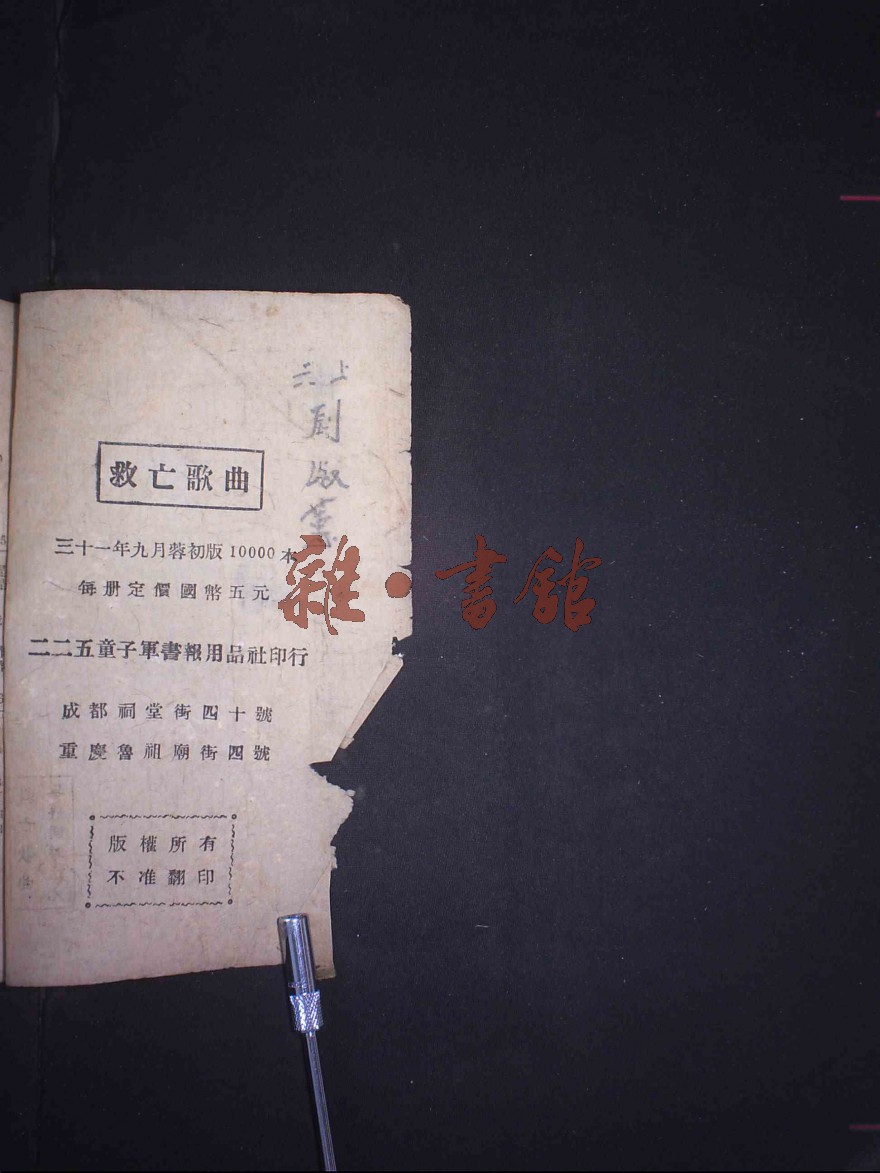 三上
救亡歌曲
三十一年九月蓉初版10000本
每册定價國幣五元
二二五童子軍書報用品社印行
成都祠堂街四十號
重慶魯祖廟街四號
版權所有
不准翻印
雜·書館